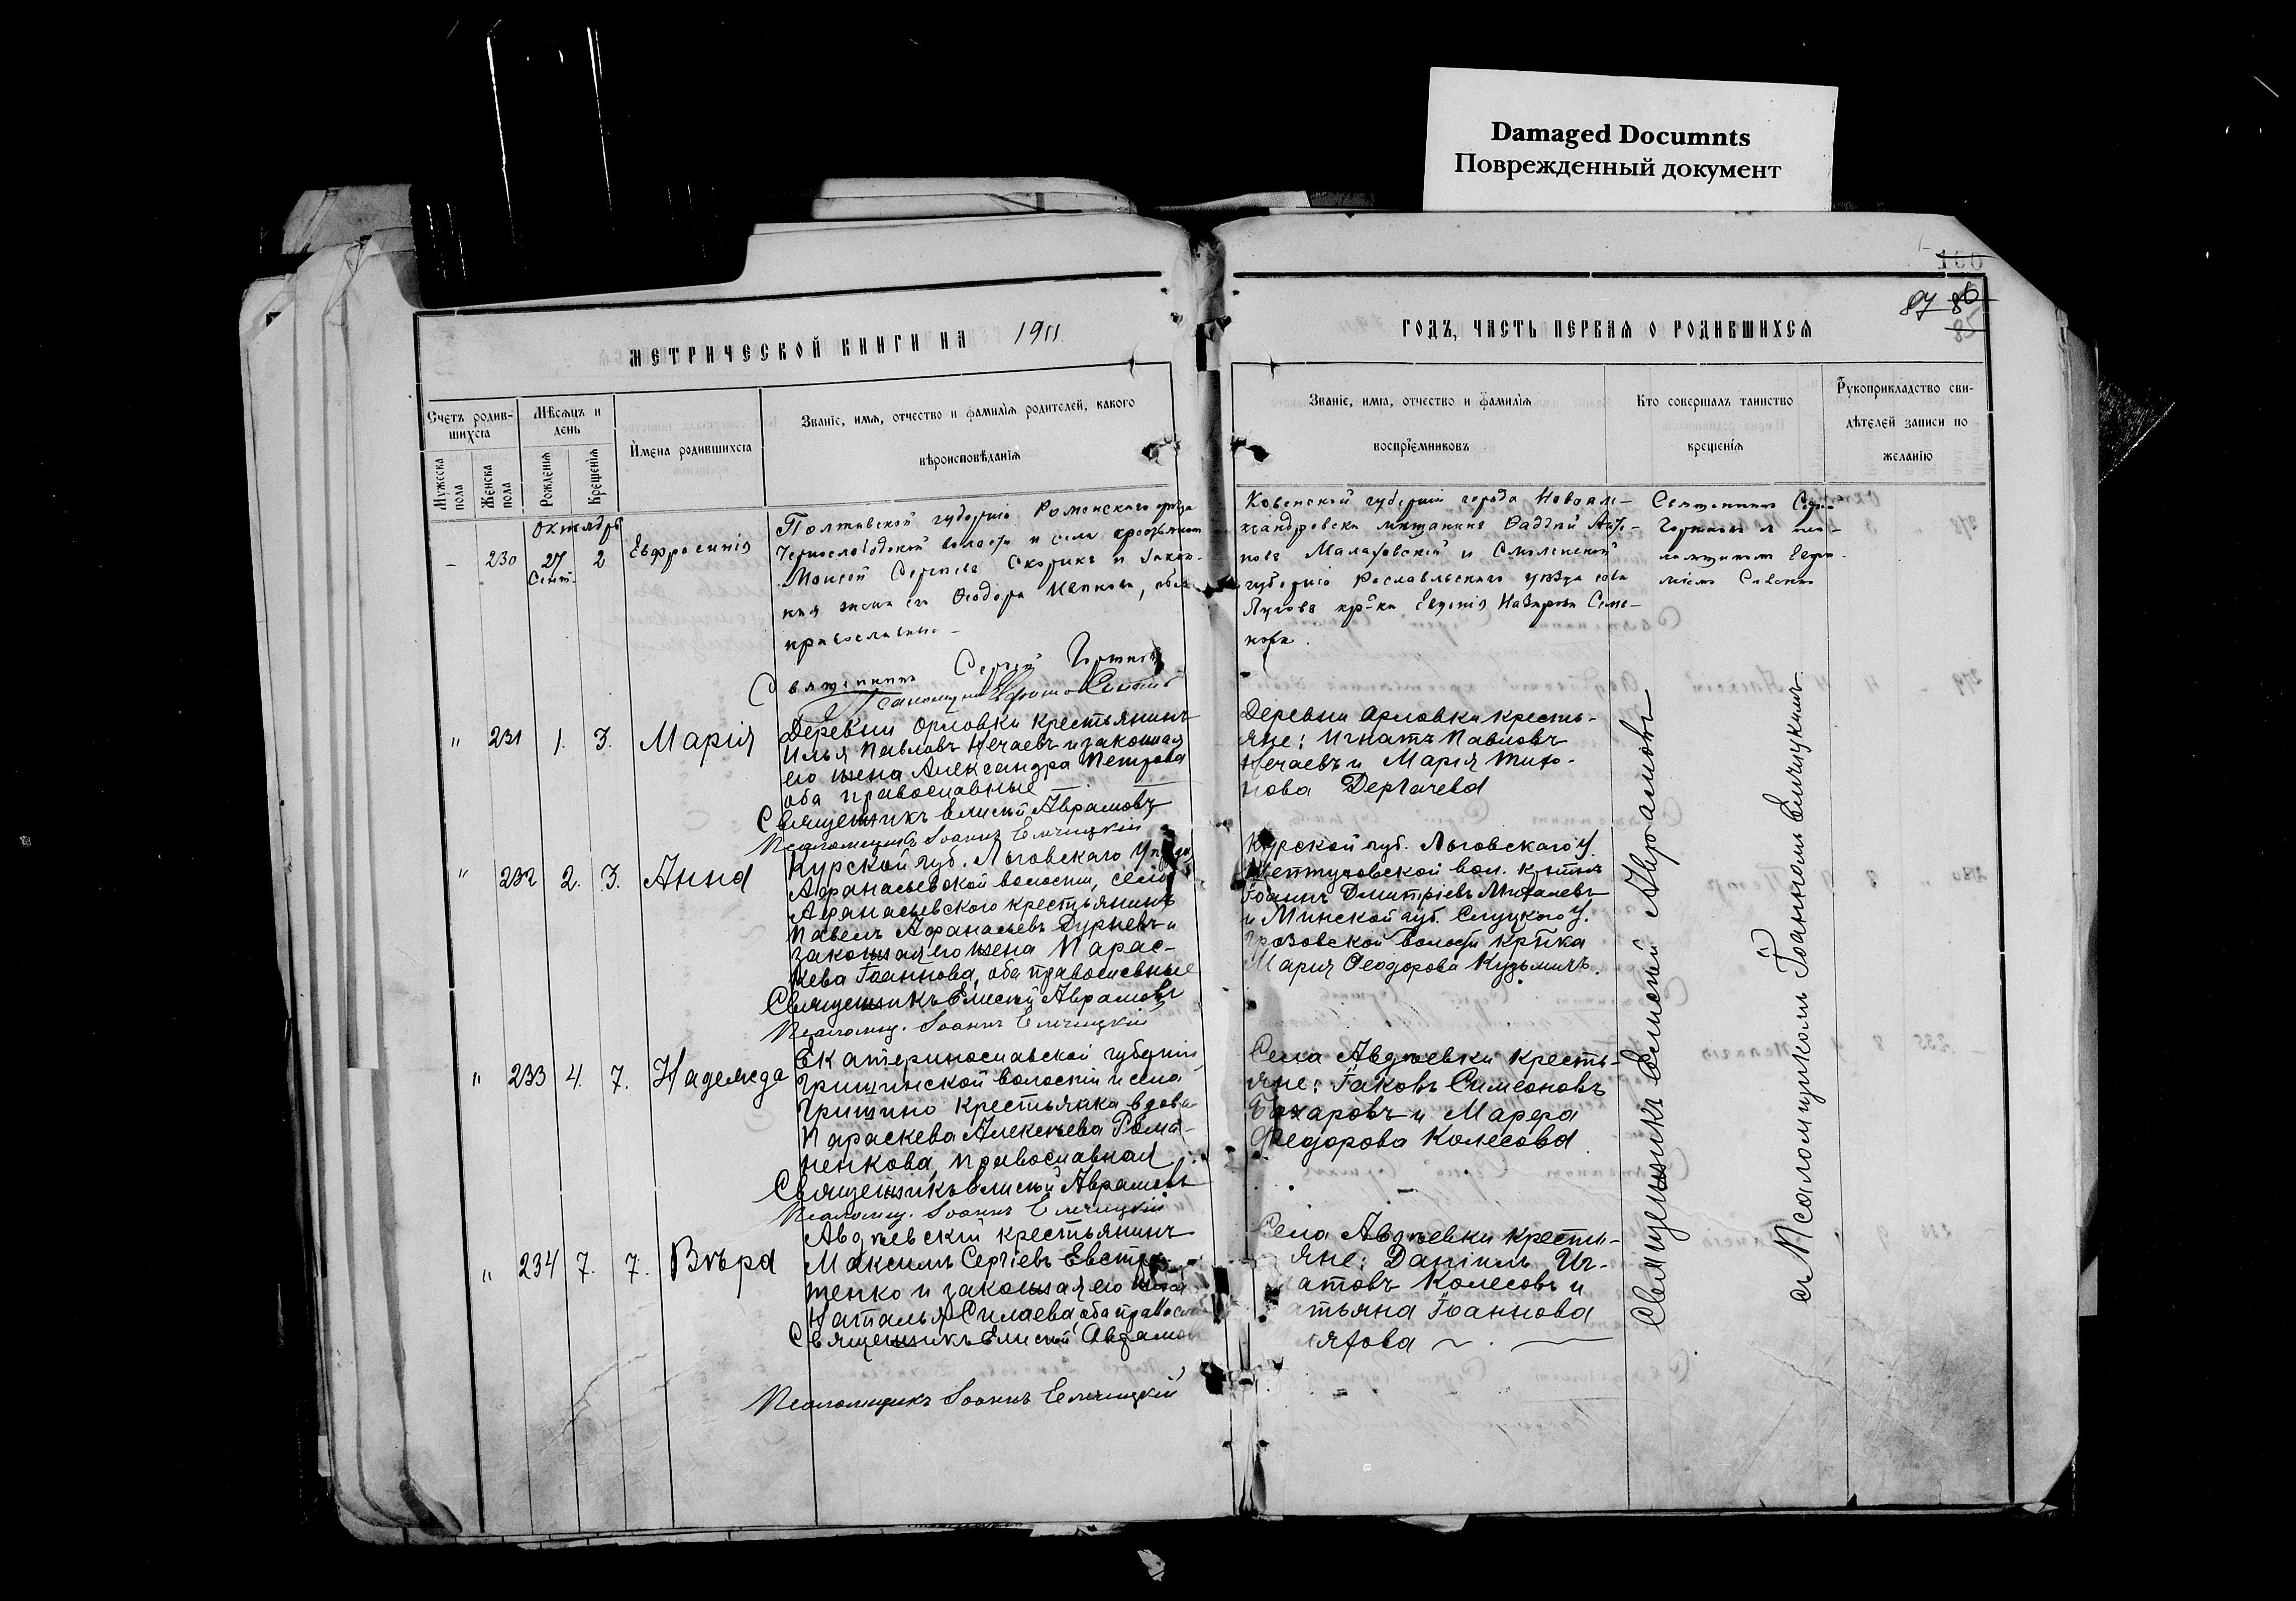 Damaged Documnts
Поврежденный документ
100
87 86
85
МЕТРИЧЕСКОЙ КНИГИ НА 1911
ГОДЪ, ЧАСТЬ ПЕРВАЯ О РОДИВШИХСЯ
Счетъ родив-
шихся
Мужеска пола
Женска пола
Мѣсяцъ и
день
Рожденія
Крещенія
Имена родившихся
Званіе, имя, отчество и фамилія родителей, какого
вѣроисповѣданія
Званіе, имя, отчество и фамилія
воспріемниковъ
Кто совершалъ таинство
крещенія
Рукоприкладство сви-
дѣтелей записи по
желанію
Октябрь
- 230 27 Сент. 2 Евфросинія
Полтавской губерніи Роменскаго уѣзда
волости и села крестьянинъ
Моисей Сергіевъ Скорикъ и закон-
ная жена его Феодора, оба
православные
Священникъ Сергій
Ковенской губерніи города Новоале-
ксандровска мѣщанинъ Фаддей
Малаховскій и Смоленской
губерніи Рославльскаго уѣзда
кр-ка Евгенія Назарова Семе-
нова.
Священникъ
" 231 1. 3. Марія
Деревни Орловки крестьянинъ
Илья Павловъ Нечаевъ и законная
его жена Александра Петрова
оба православные
Священникъ Елисей Аврамовъ
Псаломщикъ Іоаннъ Ельчицкій
Деревни Орловки кресть-
яне: Игнатъ Павловъ
Нечаевъ и Марія Тихо-
нова Дергачева
" 232 2. 3. Анна
Курской губ. Льговскаго уѣзда
Афанасьевской волости, села
Афанасьевского крестьянинъ
Павелъ Афанасьевъ Дурневъ и
законная его жена Парас-
кева Іоаннова, оба православные
Священникъ Елисей Аврамовъ
Псаломщ. Іоаннъ Ельчицкій
Курской губ. Льговскаго У.
вол.
Іоаннъ Дмитріевъ Михалевъ
и Минской губ. Слуцкого У.
Грозовской волости кр-нка
Марія Феодорова Кузьмичъ.
" 233 4. 7. Надежда
Екатеринославской губерніи
Гришинской волости и села
Гришино крестьянка вдова
Параскева Алексѣева Рома-
ненкова, православная
Священникъ Елисей Аврамовъ
Псаломщ. Іоаннъ Ельчицкій
Села Авдѣевки кресть-
яне: Іаковъ Симеоновъ
Бахаровъ и Марфа
Федорова Колесова
" 234 7. 7. Вѣра
Авдѣевскій крестьянинъ
Максимъ Сергіевъ
тенко и законная его жена
Наталья Силаева, оба правосл
Священникъ Елисей Аврамов
Псаломщикъ Іоаннъ Ельчицкій
Села Авдѣевки кресть-
яне: Даніилъ Иг-
атовъ Колесовъ и
атьяна Іоаннова
яхова
Священникъ Елисей Аврамовъ
съ Псаломщикомъ Іоанномъ Ельчицкимъ